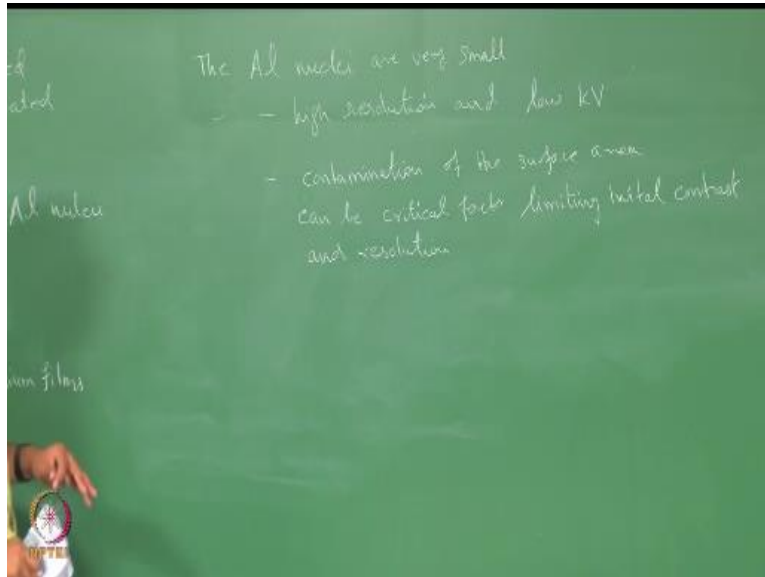 ed
ated
Al nuclei
films
The Al nuclei are very small
- - high resolution and low kV
- contamination of the surface area
can be critical factor limiting initial contrast
and resolution
NPTEL